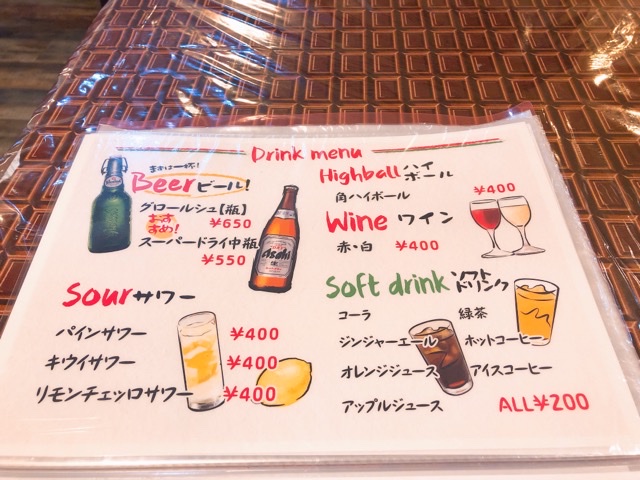 Drink menu
まずは一杯!
Beer ビール!
グロールシュ【瓶】
おすすめ!
¥650
スーパードライ中瓶
¥550
Asahi
Sour サワー
パインサワー ¥400
キウイサワー ¥400
リモンチェッロサワー ¥400
Highball ハイボール
角ハイボール ¥400
Wine ワイン
赤・白 ¥400
Soft drink ソフトドリンク
コーラ 緑茶
ジンジャーエール ホットコーヒー
オレンジジュース アイスコーヒー
アップルジュース ALL¥200